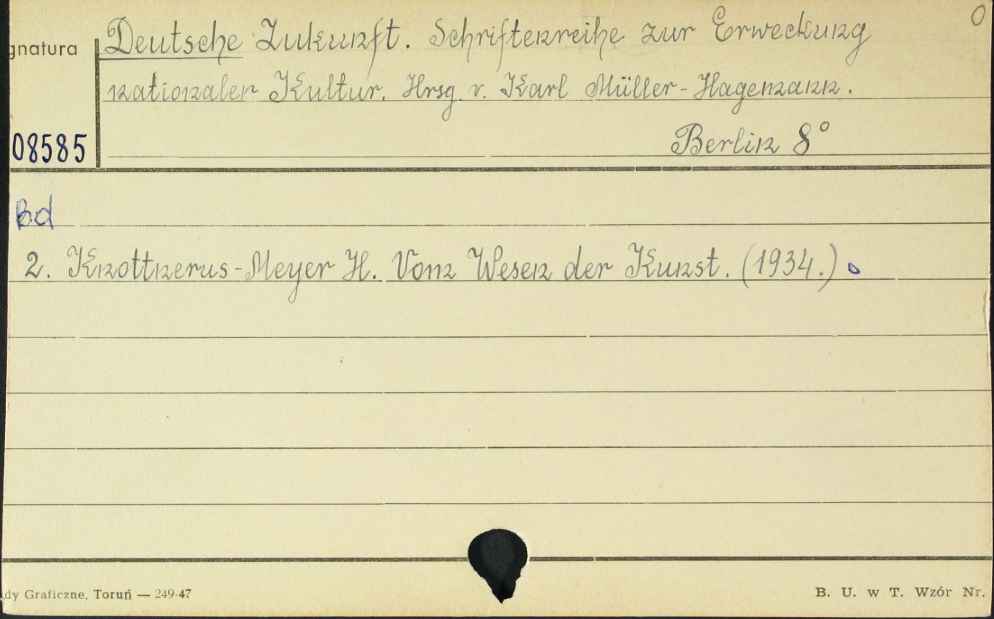 gnatura
Deutsche Zukunft. Schriftenreihe zur Erweckung
0
nationaler Kultur. Hrsg. v. Karl Müller-Hagemann.
08585
Berlin 8°
Bd
2. Knottnerus-Meyer H. Vom Wesen der Kunst. (1934.)
dy Graficzne, Toruń — 249-47
B. U. w T. Wzór Nr.